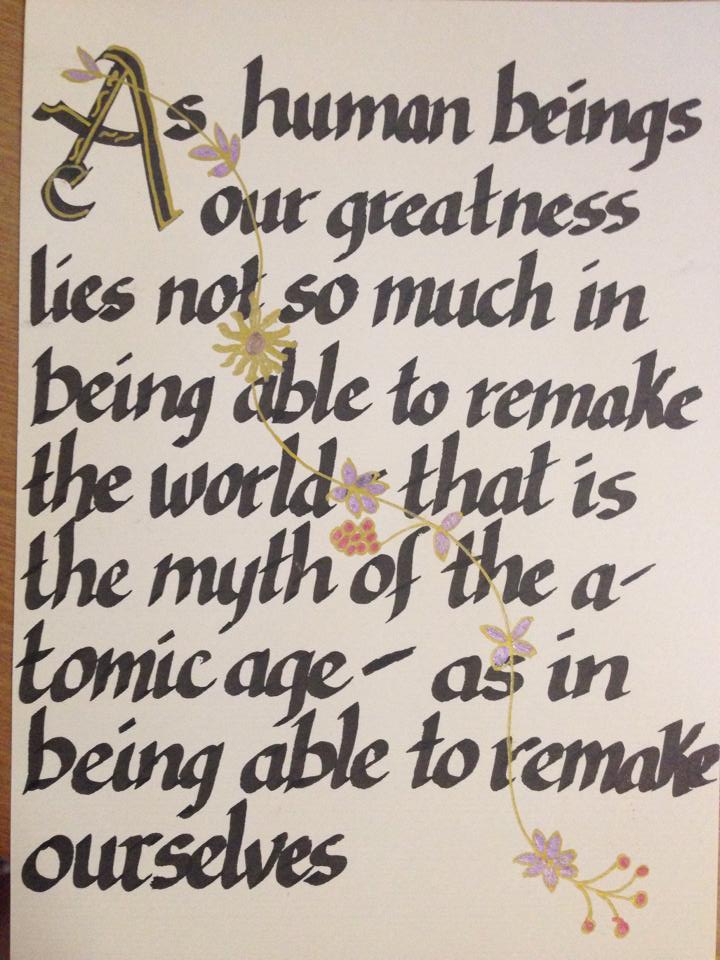 As human beings
our greatness
lies not so much in
being able to remake
the world - that is
the myth of the a-
tomic age - as in
being able to remake
ourselves